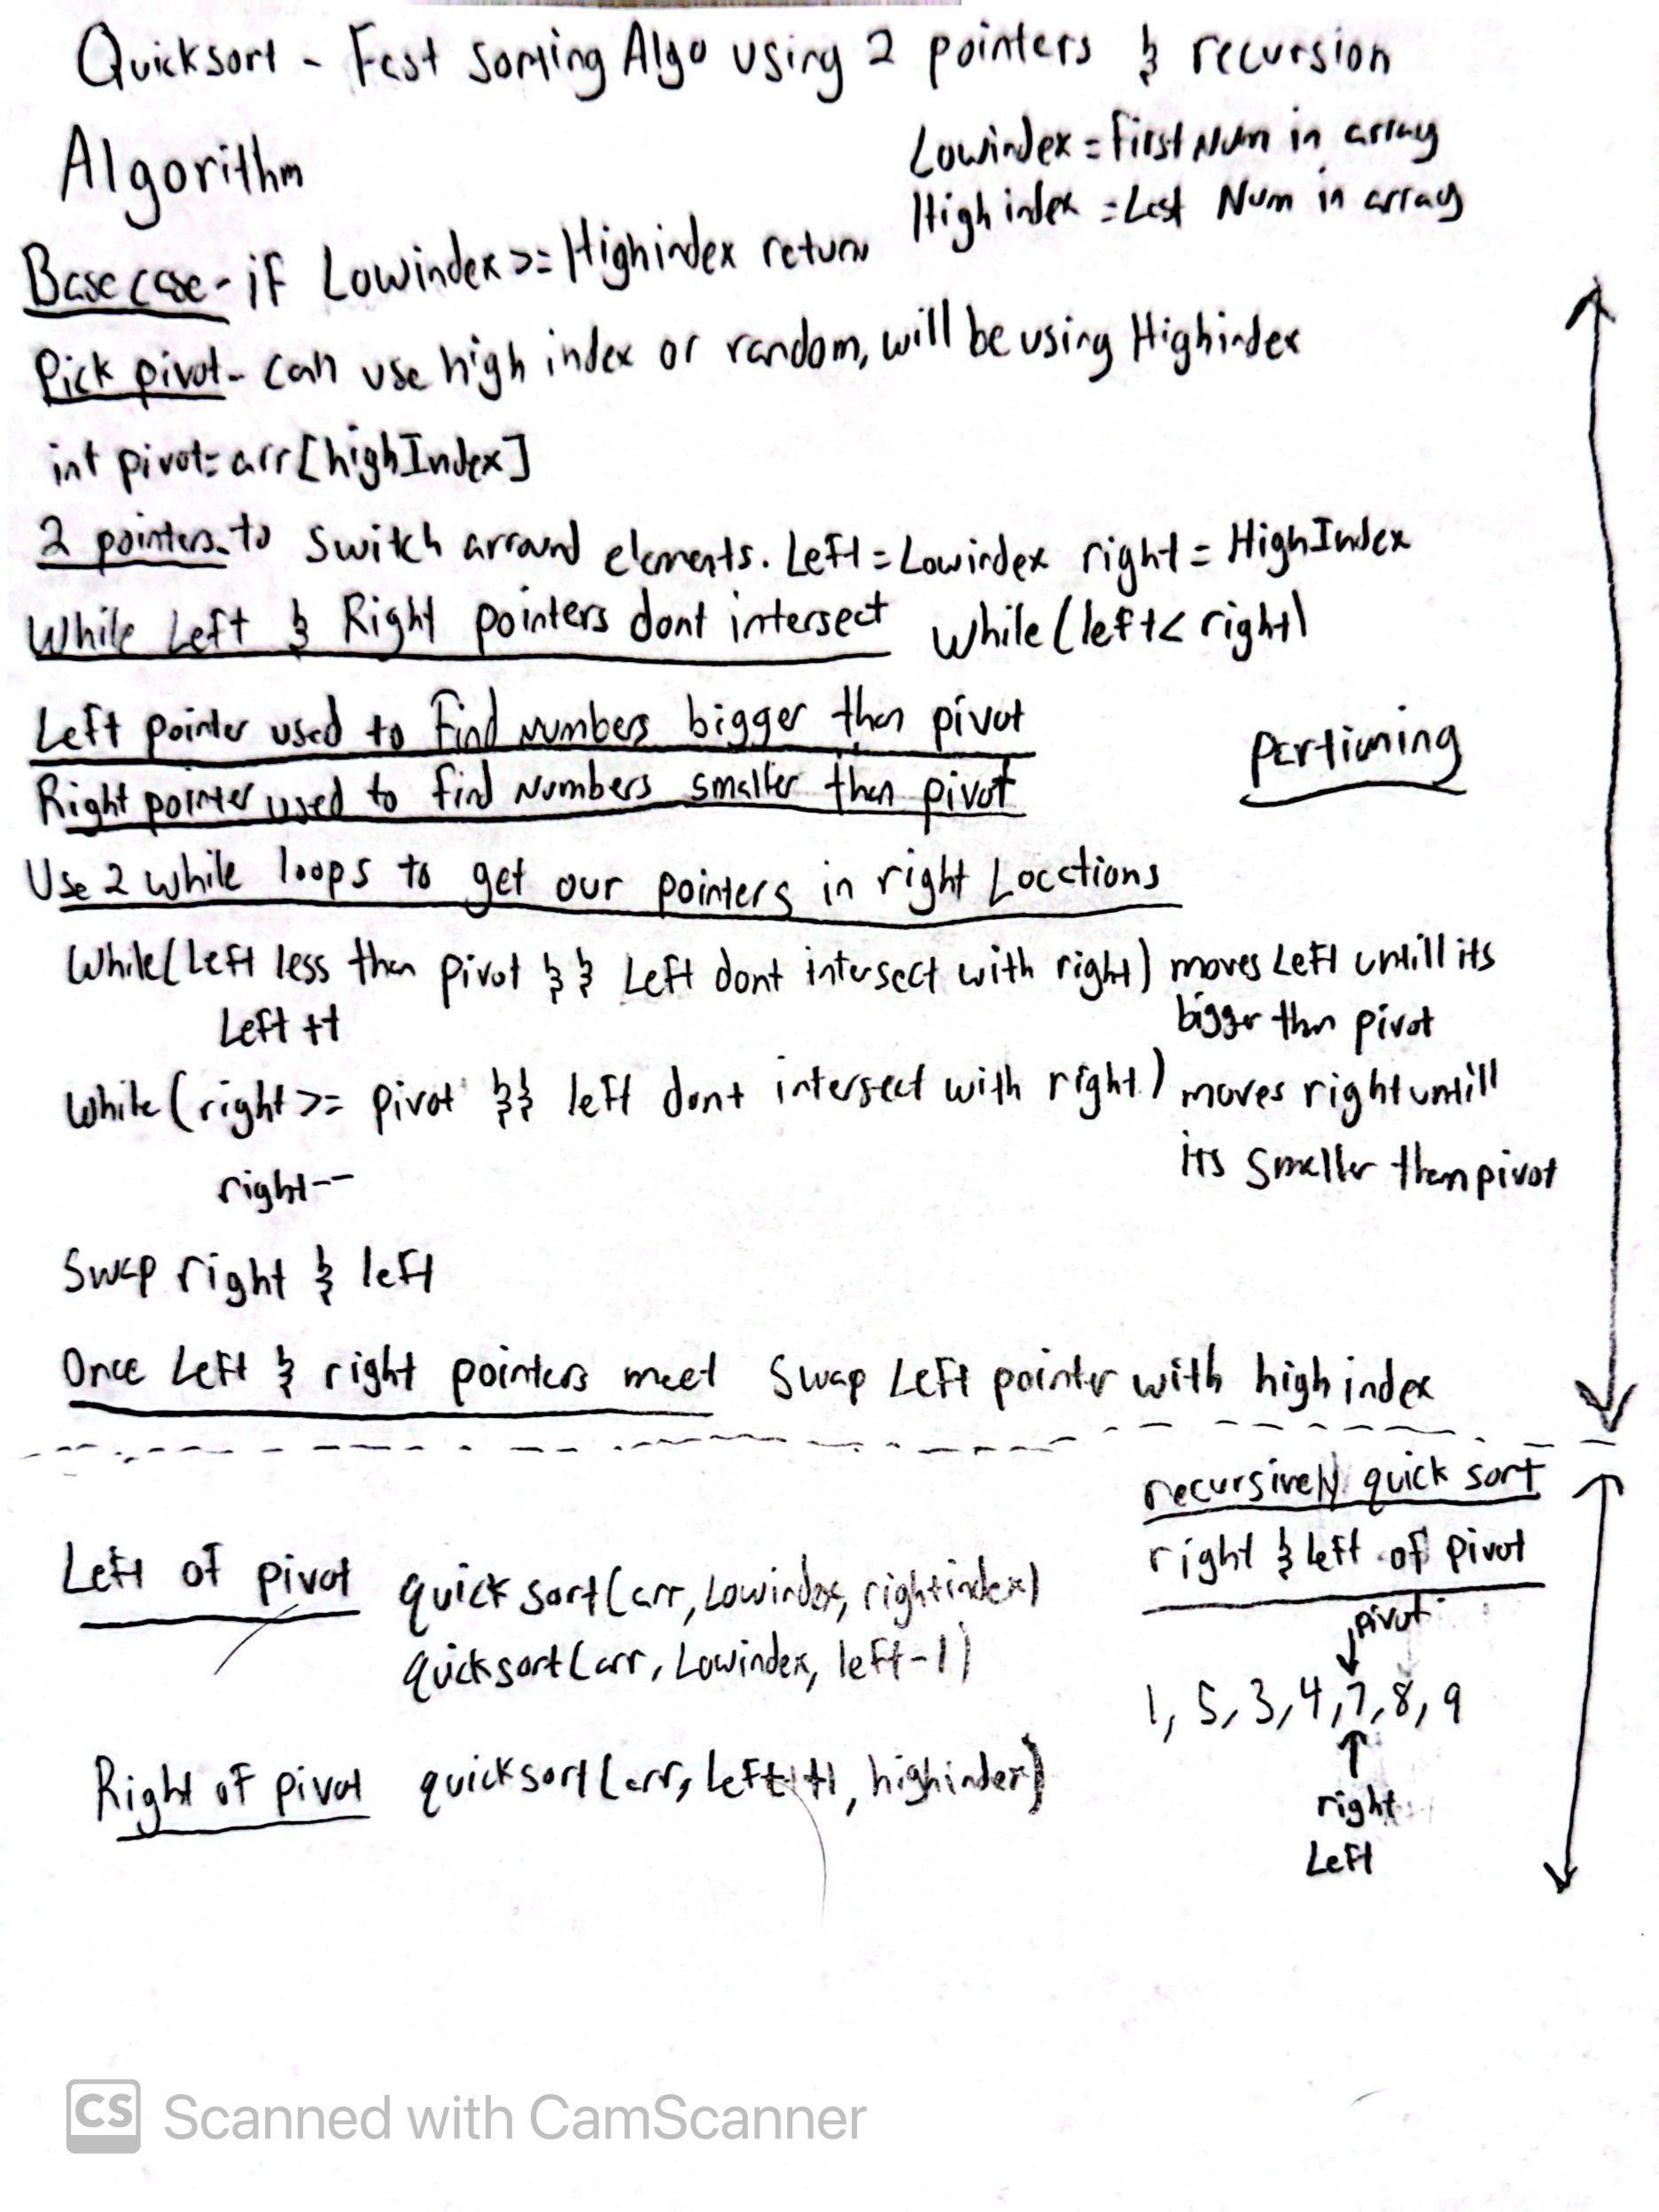 Quicksort - Fast sorting Algo using 2 pointers & recursion
Algorithm
Lowindex = First Num in array
High index = Last Num in array
Base case - if Lowindex >= Highindex return
Pick pivot - can use high index or random, will be using Highindex
int pivot = arr[highIndex]
2 pointers - to switch arround elements. Left = Lowindex right = HighIndex
While Left & Right pointers dont intersect while (left < right)
Left pointer used to Find numbers bigger than pivot
Right pointer used to find Numbers smaller than pivot
partioning
Use 2 while loops to get our pointers in right Locations
While(Left less than pivot && Left dont intersect with right) moves Left untill its
Left ++
bigger than pivot
While (right >= pivot && left dont intersect with right) moves right untill
its smaller than pivot
right--
Swap right & left
Once Left & right pointers meet Swap Left pointer with high index
recursively quick sort
right & left of pivot
Left of pivot quick sort(arr, Lowindex, rightindex)
quicksort(arr, Lowindex, left-1)
pivot
1, 5, 3, 4, 7, 8, 9
right
Left
Right of pivot quicksort(arr, Left+1, highindex)
CS Scanned with CamScanner